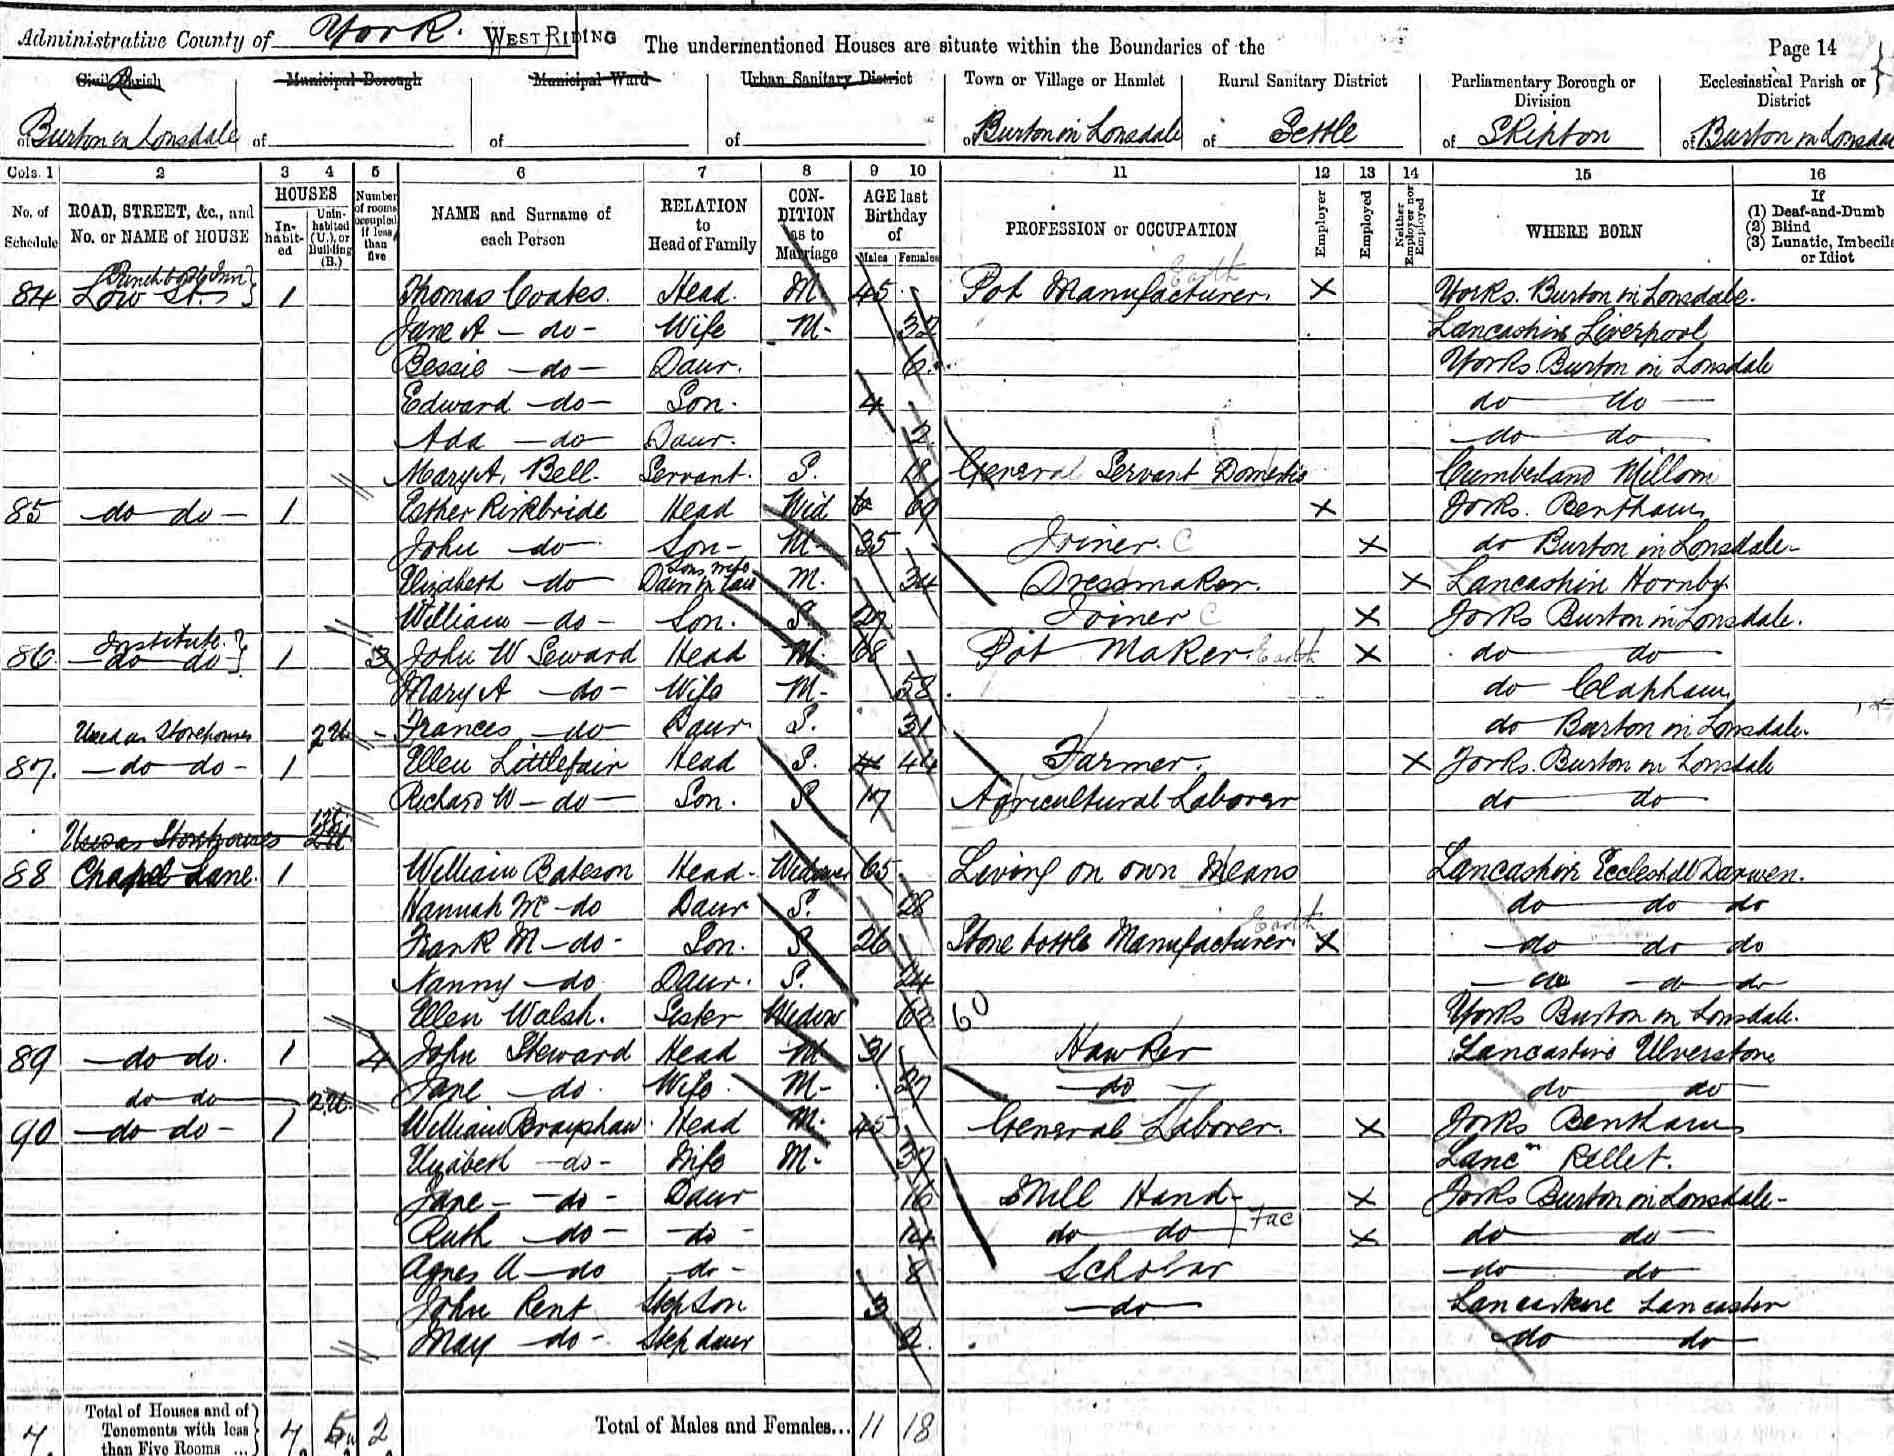 Administrative County of York. WEST RIDING The undermentioned Houses are situate within the Boundaries of the Page 14
Civil Parish Municipal Borough Municipal Ward Urban Sanitary District Town or Village or Hamlet Rural Sanitary District Parliamentary Borough or Division Ecclesiastical Parish or District
of Burton in Lonsdale of of of of Burton in Lonsdale of Settle of Skipton of Burton in Lonsdale
Cols. 1 2 3 4 5 6 7 8 9 10 11 12 13 14 15 16
No. of Schedule ROAD, STREET, &c., and No. or NAME of HOUSE HOUSES In-habit-ed Unin-habited (U.), or Building (B.) Number of rooms occupied if less than five NAME and Surname of each Person RELATION to Head of Family CON-DITION as to Marriage AGE last Birthday of Males Females PROFESSION or OCCUPATION Employer Employed Neither Employer nor Employed WHERE BORN If (1) Deaf-and-Dumb (2) Blind (3) Lunatic, Imbecile or Idiot
84 Punch bowl Inn Low St 1 Thomas Coates. Head. M 45 Pot Manufacturer. Earth X Yorks. Burton in Lonsdale.
Jane A - do - Wife M- 32 Lancashire Liverpool
Bessie - do - Daur. 6 Yorks Burton in Lonsdale
Edward - do - Son. 4 do do
Ada - do Daur. 2 do do
Mary A. Bell. Servant. S. 18 General Servant Domestic Cumberland Millom
85 - do do - 1 Esther Kirkbride Head Wid 69 X Yorks. Bentham
John - do Son - M- 35 Joiner. C X do Burton in Lonsdale-
Elizabeth - do Sons wife Daur in Law M. 34 Dressmaker. X Lancashire Hornby
William - do - Son. S. 29 Joiner C X Yorks Burton in Lonsdale.
86 Institute. - do do - 1 3 John W Seward Head M 68 Pot Maker. Earth X do do
Mary A - do - Wife M- 58 do Clapham
Used as Storehouses 2 U - Frances - do Daur. S. 31 do Burton in Lonsdale.
87. - do do - 1 Ellen Littlefair Head S. 44 Farmer. X Yorks. Burton in Lonsdale
Richard W - do - Son. S 17 Agricultural Laborer do do
Used as Storehouses 2U
88 Chapel Lane. 1 William Bateson Head- Widower 65 Living on own Means Lancashire Eccleshill Darwen.
Hannah Mc - do Daur S. 28 do do do
Frank M - do - Son. S 26 Stone bottle Manufacturer. Earth X - do do do
Nanny - do Daur. S. 24 - do - do - do
Ellen Walsh. Sister Widow 60 60 Yorks Burton in Lonsdale.
89 - do do. 1 4 John Steward Head M 31 Hawker Lancashire Ulverstone
do do 2 U. Jane - do. Wife M- 27 - do - do do
90 - do do - 1 William Brayshaw. Head M. 45 General Laborer. X Yorks Bentham
Elizabeth - do - Wife M- 37 Lancn Kellet.
Jane - - do - Daur 16 Mill Hand- X Yorks Burton in Lonsdale-
Ruth - do - - do - 14 do do Fac X do do
Agnes A - do - do - 8 Scholar - do do
John Kent Step Son 3 - do - Lancashire Lancaster
May - do - Step daur 2. do do
7. Total of Houses and of Tenements with less than Five Rooms ... 7 5u 2 Total of Males and Females... 11 18